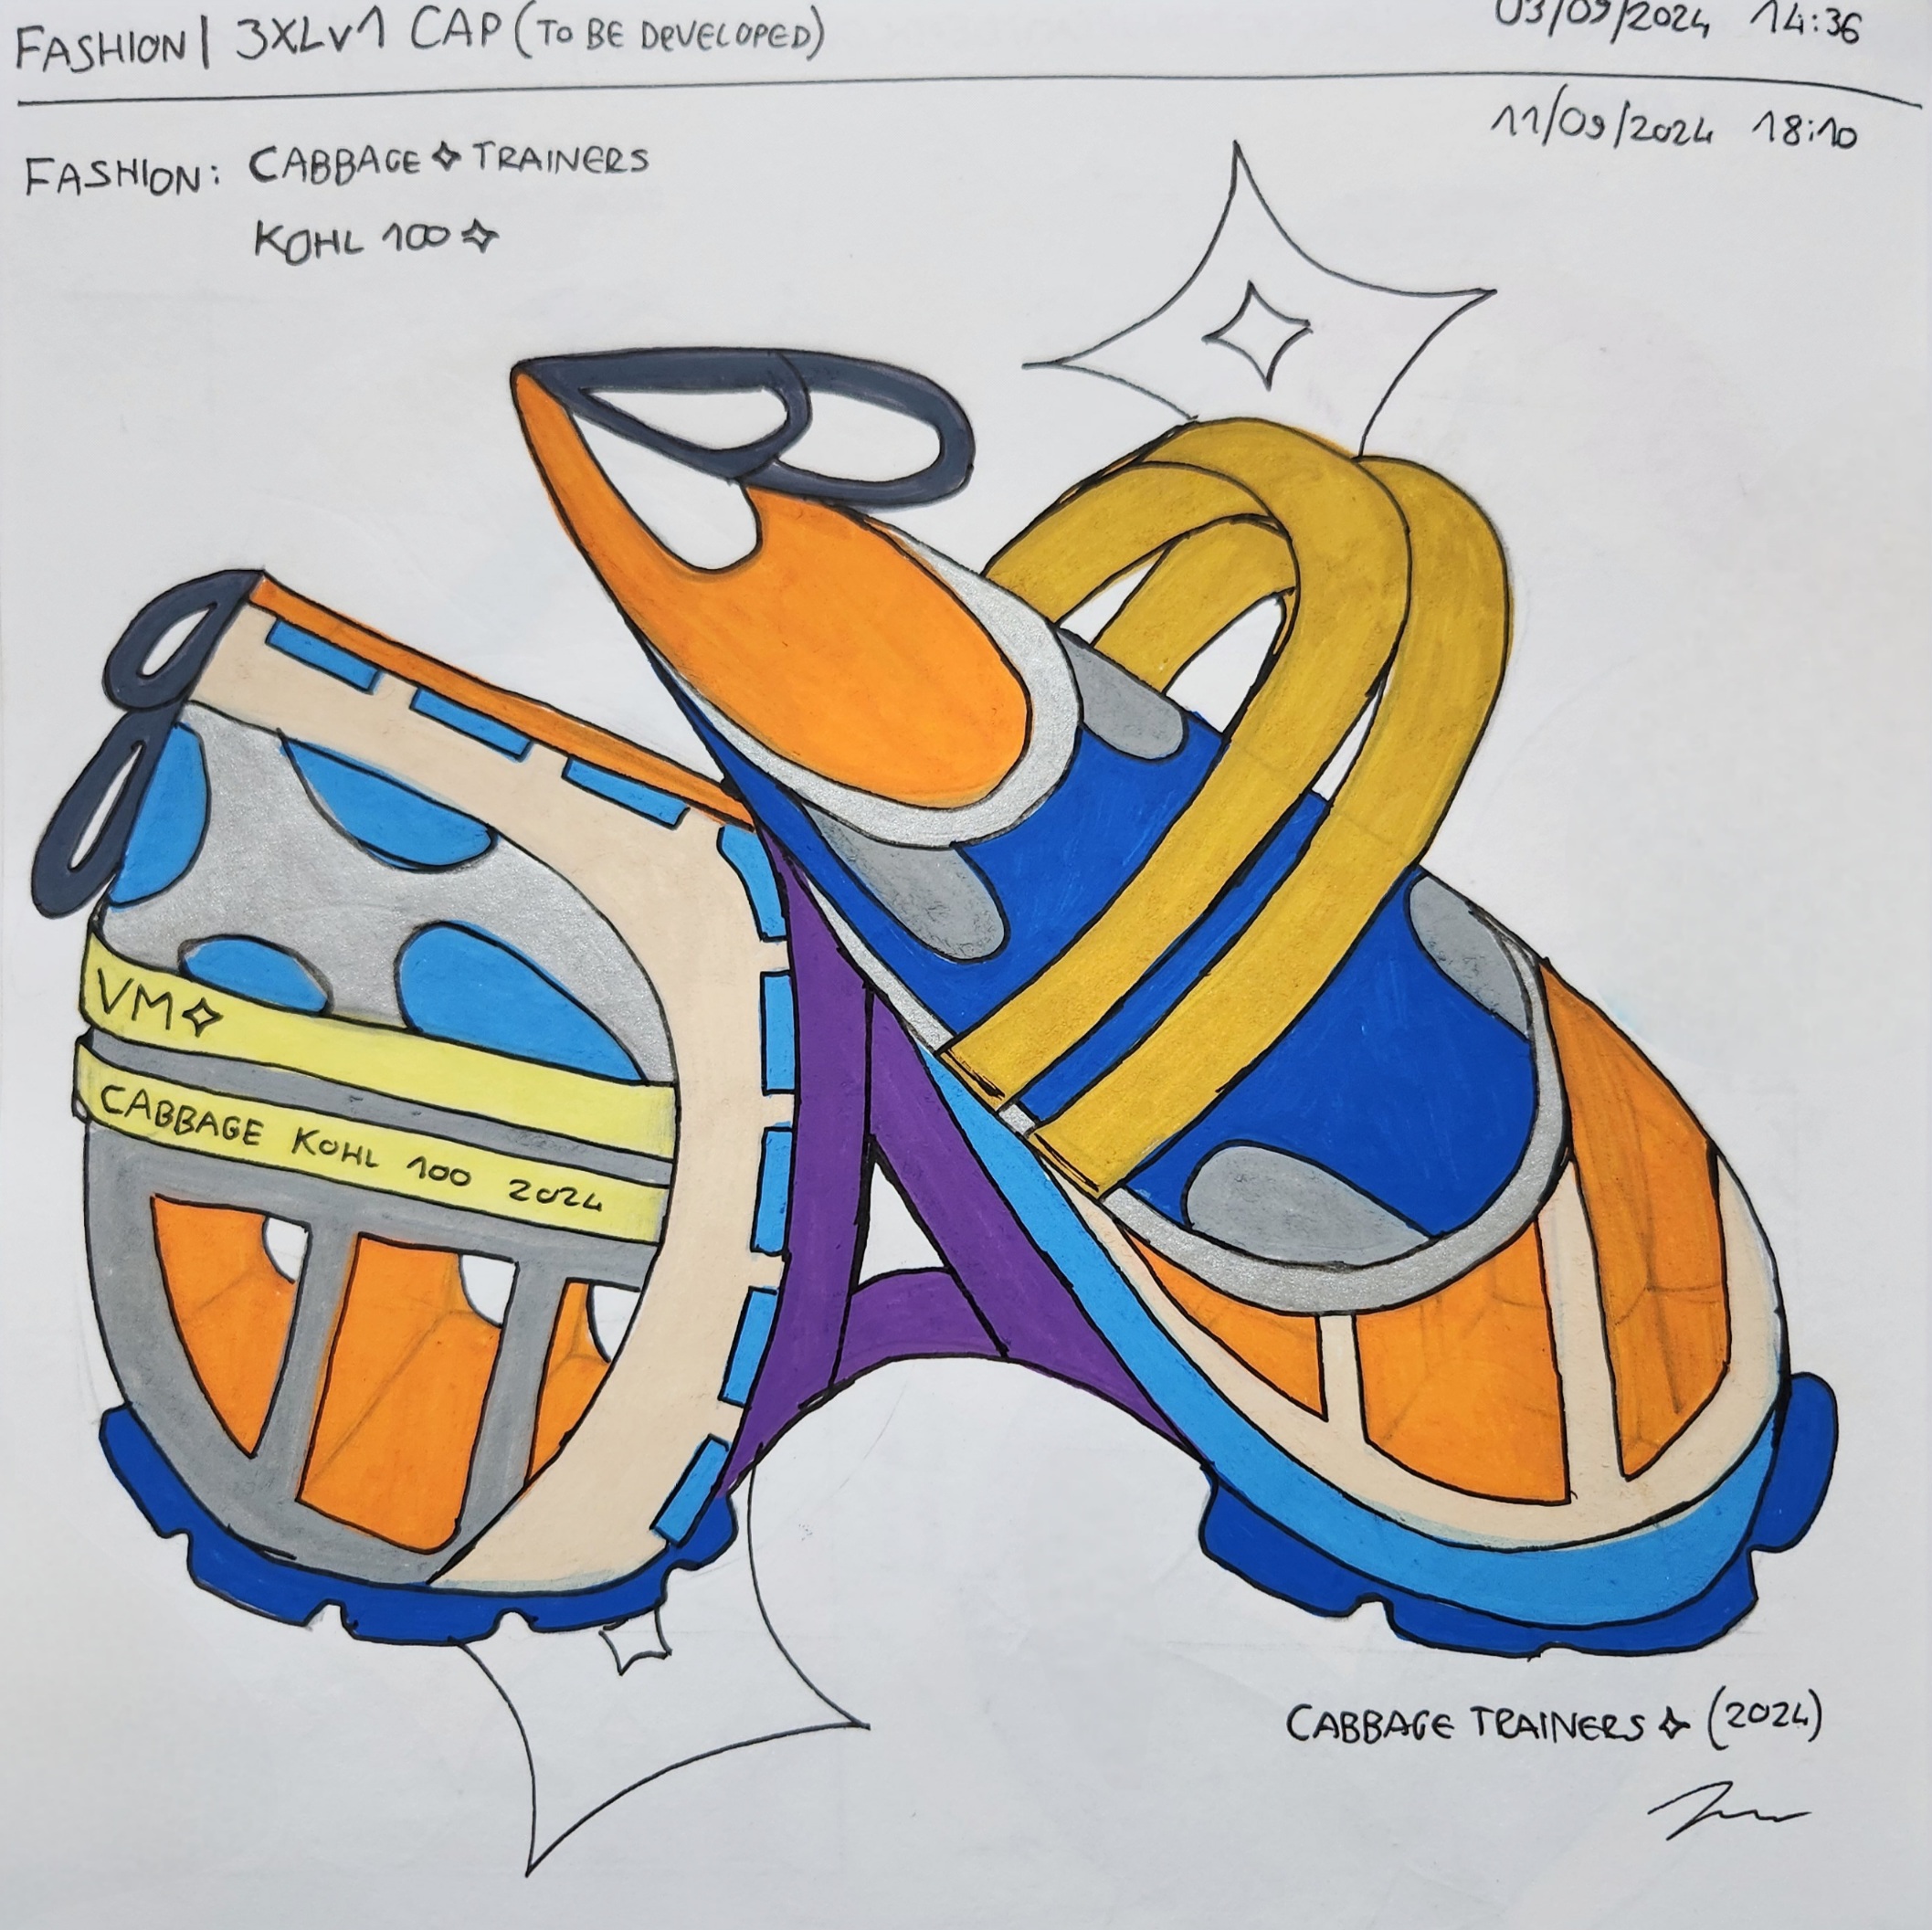 FASHION| 3XLv1 CAP (TO BE DEVELOPED) 03/09/2024 14:36
11/09/2024 18:10
FASHION: CABBAGE ✧ TRAINERS
KOHL 100 ✧
VM ✧
CABBAGE KOHL 100 2024
CABBAGE TRAINERS ✧ (2024)